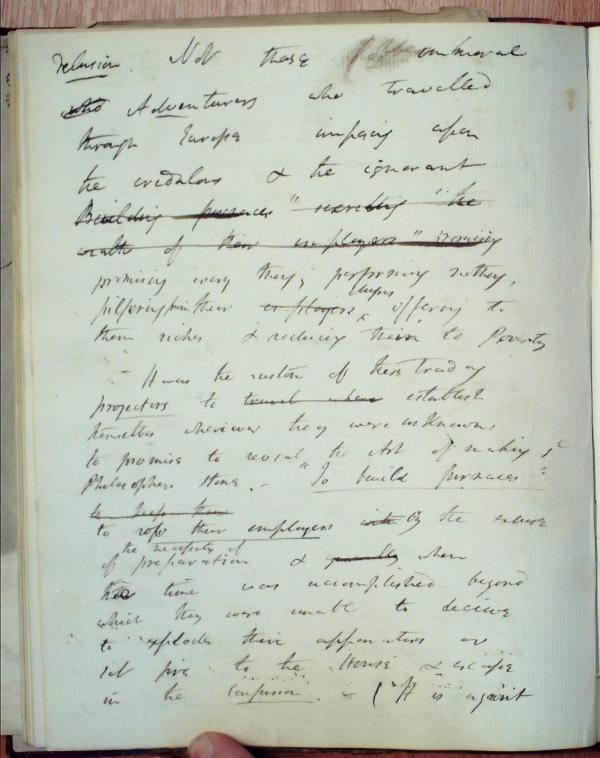 delusion. Not those unmoral
who Adventurers who travelled
through Europe imposing upon
the credulous & the ignorant
Building furnaces "exciting the
wealth of their employers" promising
promising every thing, performing nothing,
pilfering from their employers dupes, offering to
them riches & reducing them to Poverty
- It was the custom of these trading
projectors to travel where establish
themselves wherever they were unknown,
to promise to reveal the Art of making
Philosophers stone. - "To build furnaces"
to keep them
to rob their employers with by the excuse
the necessity of
of preparation & when
the time was accomplished beyond
which they were unable to deceive
to explode their apparatus or
set fire to the House & escape
in the confusion. - ( "It is against